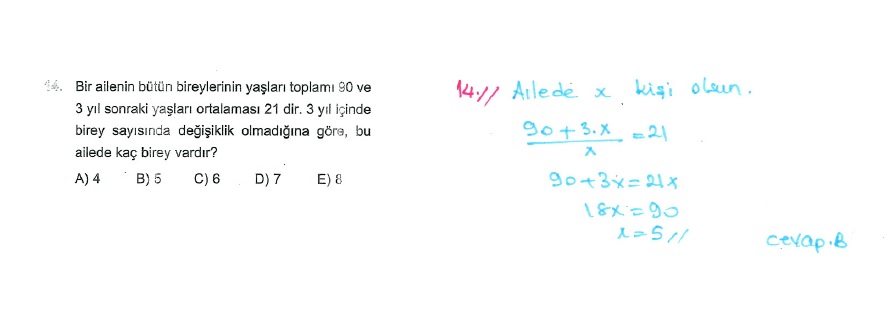 14. Bir ailenin bütün bireylerinin yaşları toplamı 90 ve
3 yıl sonraki yaşları ortalaması 21 dir. 3 yıl içinde
birey sayısında değişiklik olmadığına göre, bu
ailede kaç birey vardır?
A) 4 B) 5 C) 6 D) 7 E) 8
14.// Ailede x kişi olsun.
90+3.x
/ x = 21
90+3x=21x
18x=90
x=5//
cevap.B